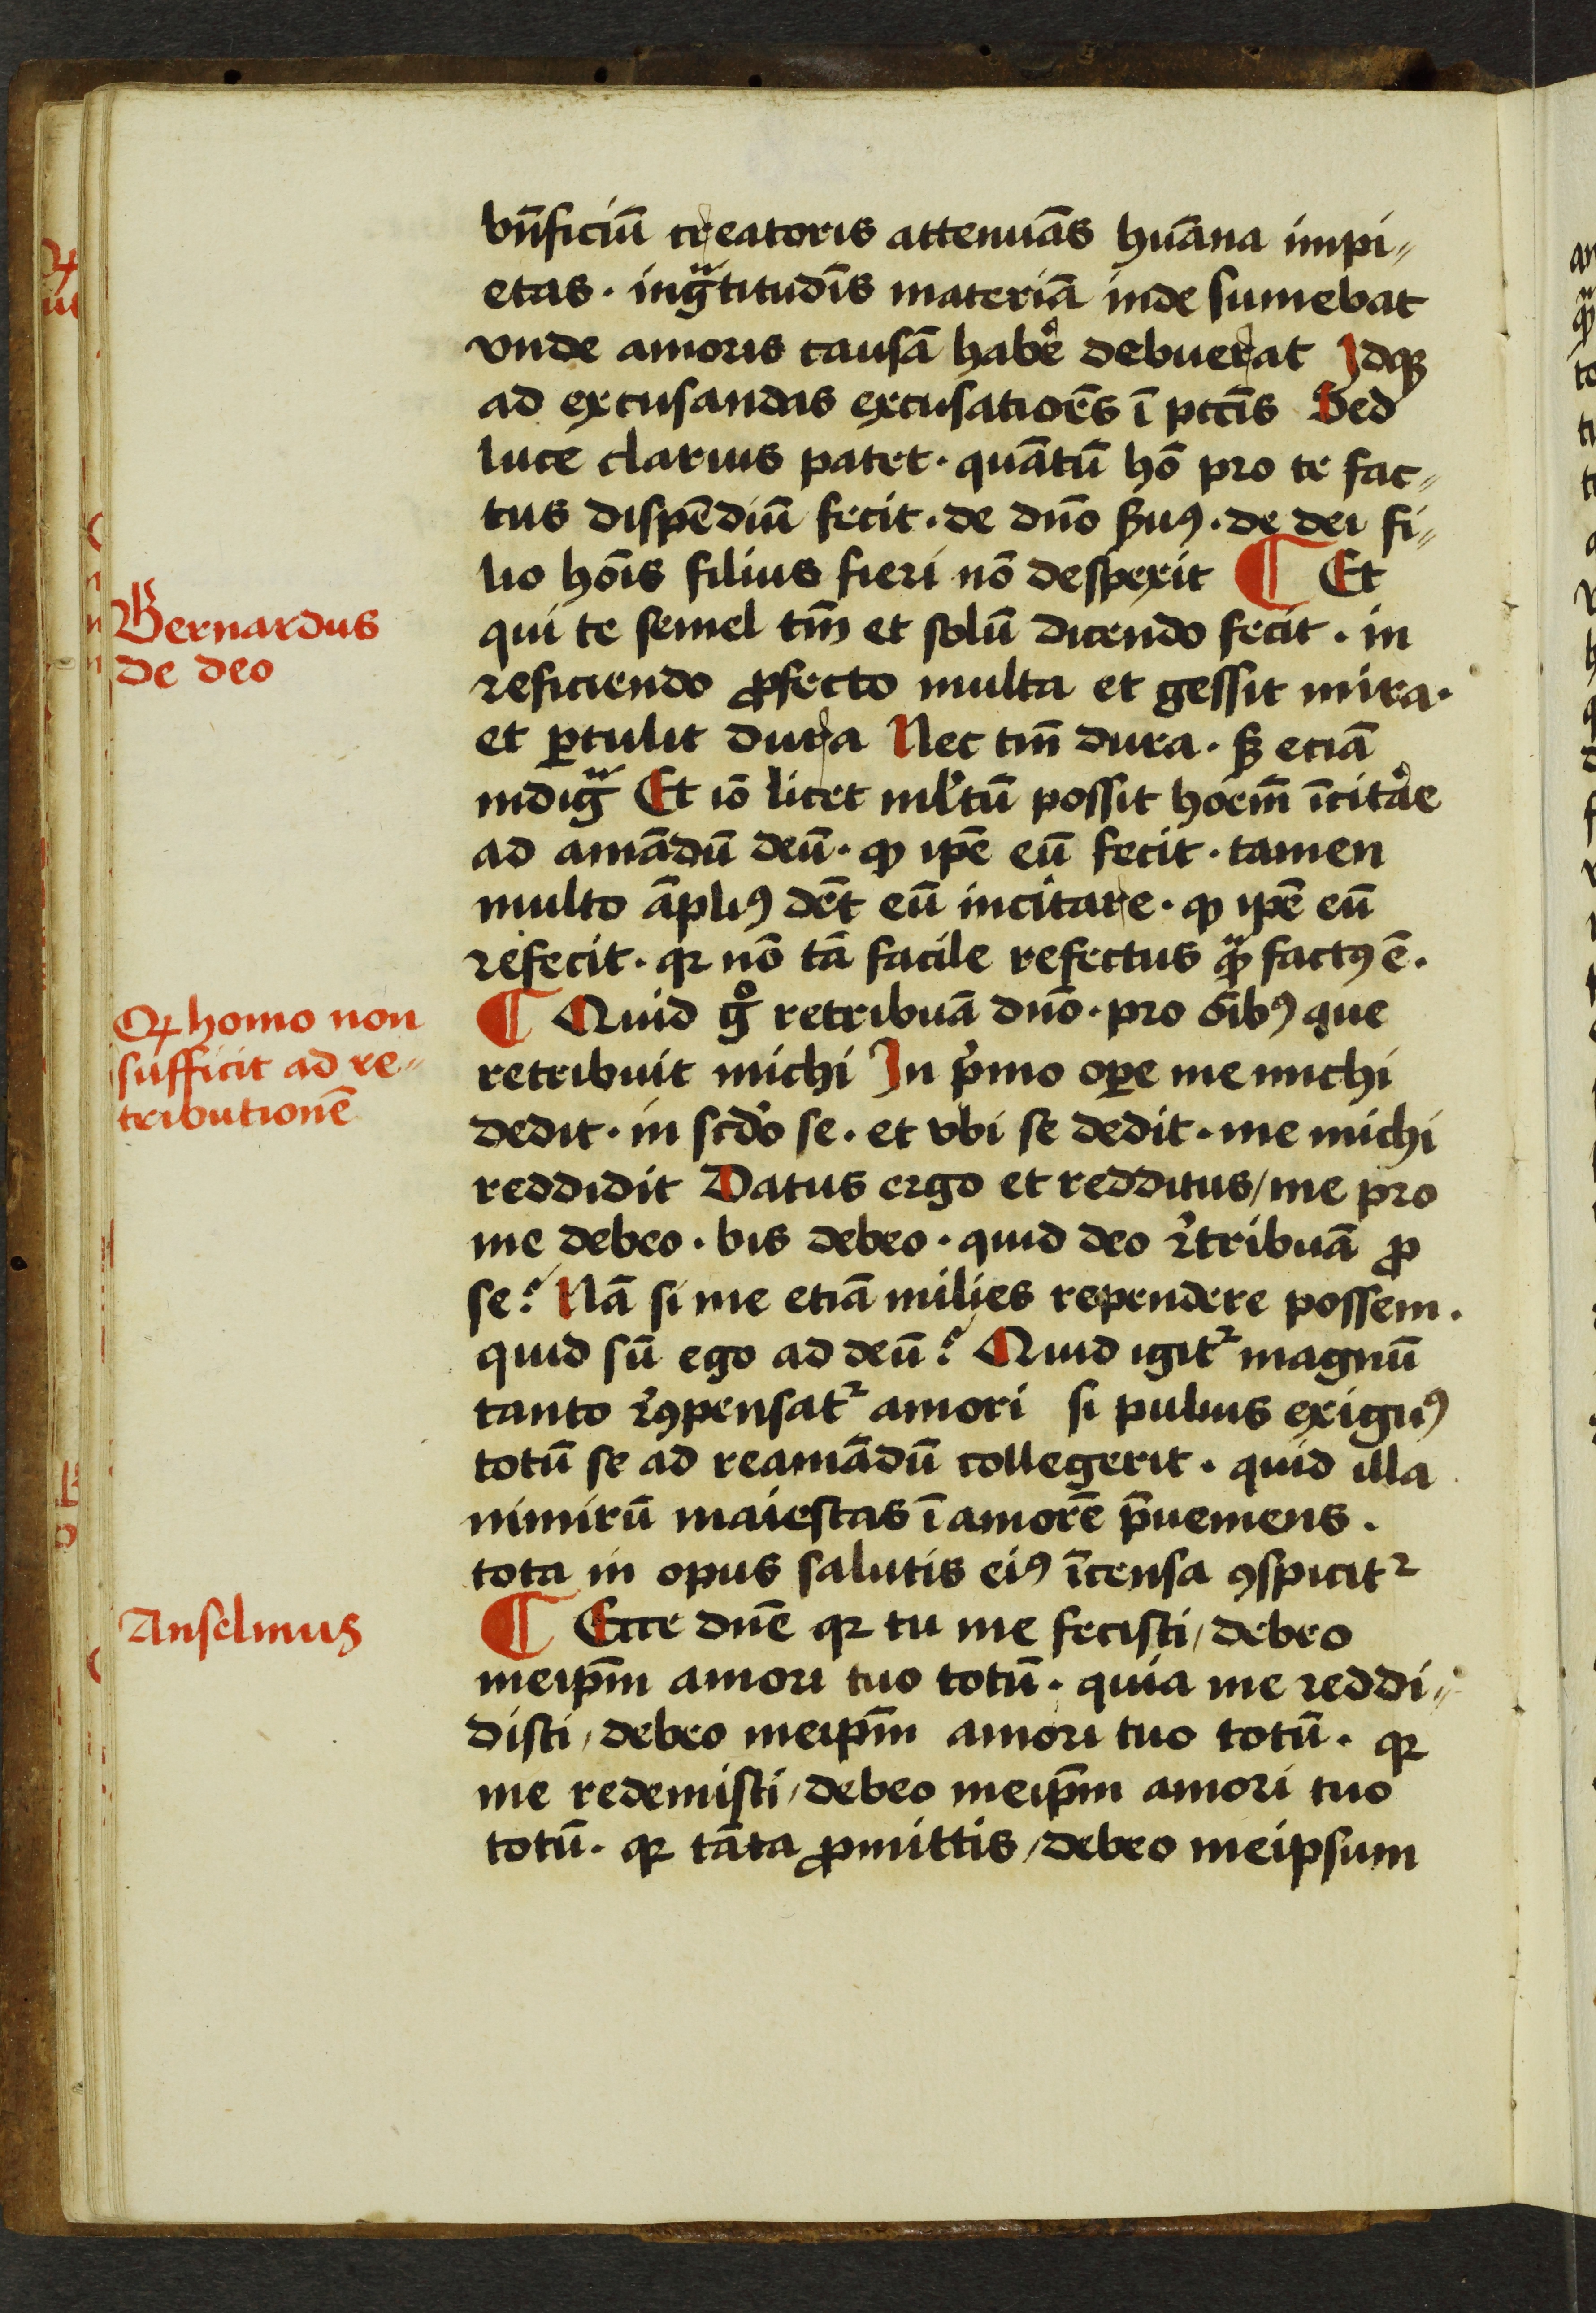 bn̄ficiū creatoris attenuās huāna impi⸗
etas. ingᵃtitudīs materiā inde sumebat
vnde amoris causā habe᷑ debuerat Idqꝫ
ad excusandas excusatiōes ī pctīs Sed
luce clarius patet. quātū hō pro te fac⸗
tus dispēdiū fecit. de dn̄o ẜuꝰ. de dei fi⸗
lio hoīs filius fieri nō despexit ¶ Et
qui te semel tm̄ et solū dicendo fecit. in
reficiendo ꝓfecto multa et gessit mira.
et ꝑtulit dura Nec tm̄ dura. sꝫ eciā
indigᵃ Et iō licet ml̓tū possit hoēm īcita᷑e
ad amādū deū. ꝙ ip̄e eū fecit. tamen
multo āpliꝰ dēt eū incitare. ꝙ ip̄e eū
refecit. qꝛ nō tā facile refectus qᵃ̄ factꝰ ē.
¶ Quid gͦ retribuā dn̄o. pro oībꝰ que
retribuit michi In p̓mo oꝑe me michi
dedit. in scd̓o se. et vbi se dedit. me michi
reddidit Datus ergo et redditus / me pro
me debeo. bis debeo. quid deo r̓tribuā ꝓ
se? Nā si me etiā milies rependere possem.
quid sū ego ad deū? Quid igit᷑ magnū
tanto r̓ꝯpensat᷑ amori si puluis exiguꝰ
totū se ad reamādū collegerit. quid illa
nimirū maiestas ī amorē p̄ueniens.
tota in opus salutis eiꝰ ītensa ꝯspicit᷑
¶ Ecce dn̄e qꝛ tu me fecisti / debeo
meip̄m amori tuo totū. quia me reddi⸗
disti / debeo meip̄m amori tuo totū. qꝛ
me redemisti / debeo meip̄m amori tuo
totū. qꝛ tāta ꝓmittis / debeo meipsum
Bernardus
de deo
Ꝙ homo non
sufficit ad re⸗
tributionē
Anselmus